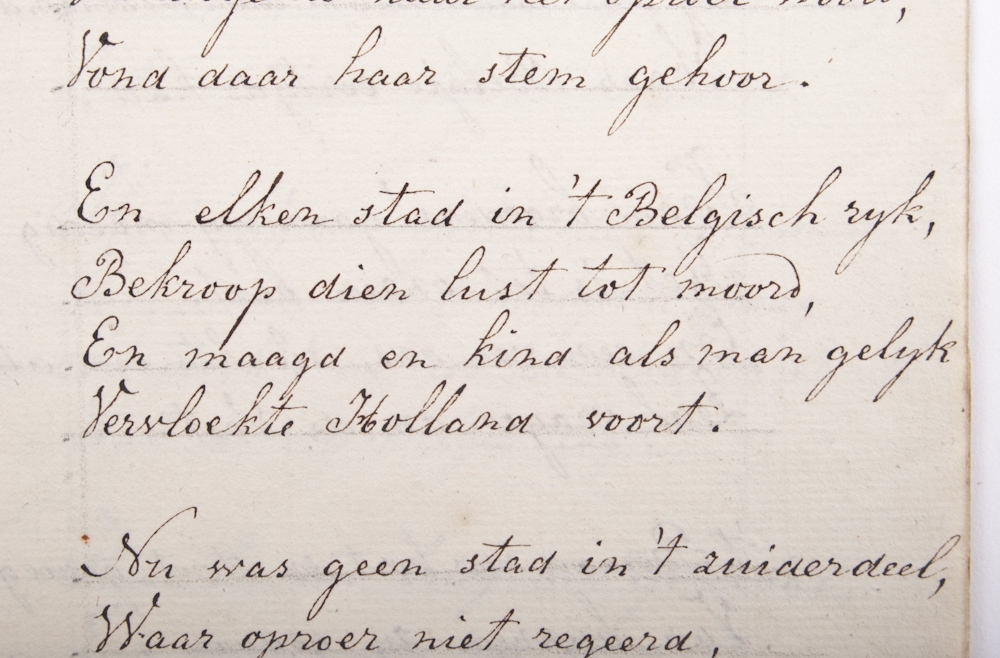 naar het oproer
Vond daar haar stem gehoor.
En elken stad in 't Belgisch ryk,
Bekroop dien lust tot moord,
En maagd en kind als man gelyk
Vervloekte Holland voort.
Nu was geen stad in 't zuiderdeel,
Waar oproer niet regeerd,